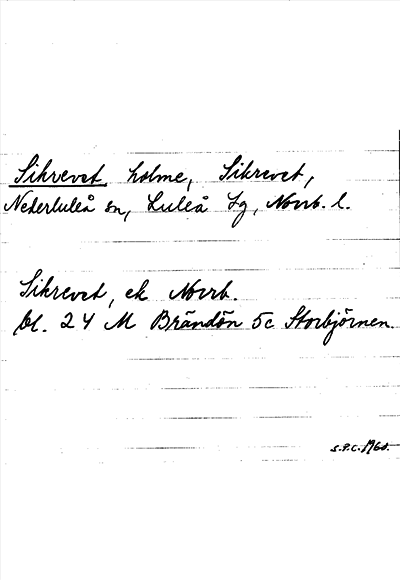 Sikrevet, holme, Sikrevet,
Nederluleå sn, Luleå tg, Norrb. l.
Sikrevet, ek Norrb.
bl. 24 M Brändön 5c Storbjörnen.
S.P.C. 1960.